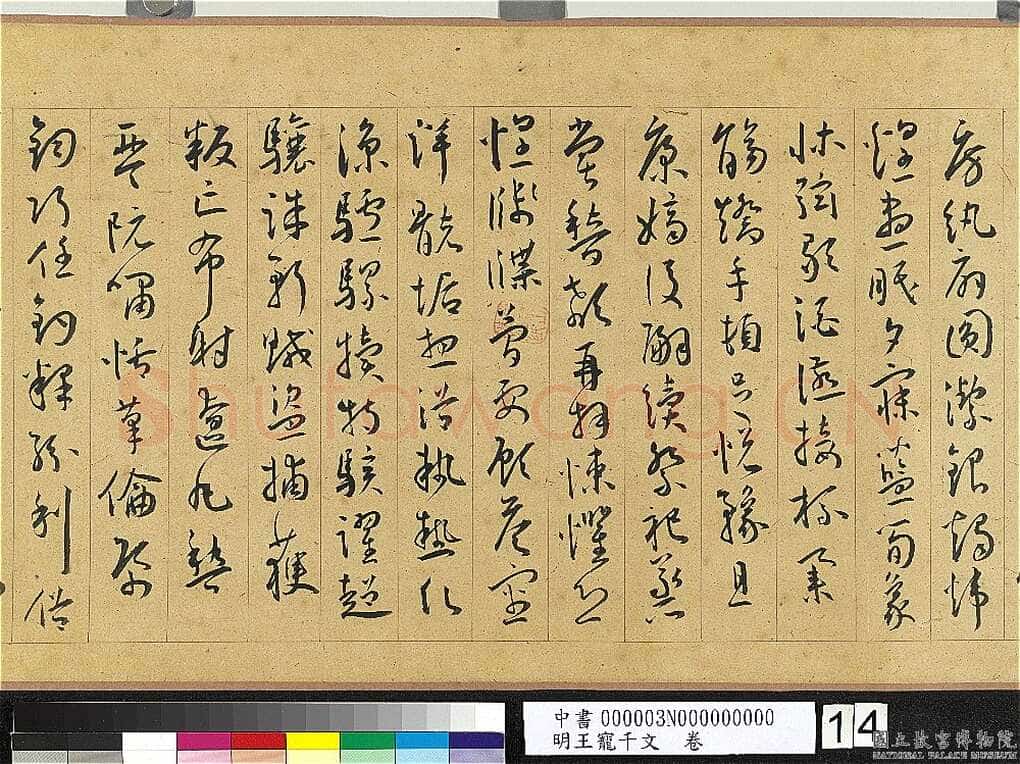 房紈扇圓潔銀燭煒
煌晝眠夕寐藍笋象
牀弦歌酒讌接杯舉
觴矯手頓足悅豫且
康嫡後嗣續祭祀蒸
嘗稽顙再拜悚懼恐
惶牋牒簡要顧答審
詳骸垢想浴執熱願
涼驢騾犢特駭躍超
驤誅斬賊盜捕獲
叛亡布射遼丸嵇
琴阮嘯恬筆倫紙
鈞巧任釣釋紛利俗
Shufawang.CN
中書 000003N000000000
明王寵千文 卷
14
國立故宮博物院
NATIONAL PALACE MUSEUM